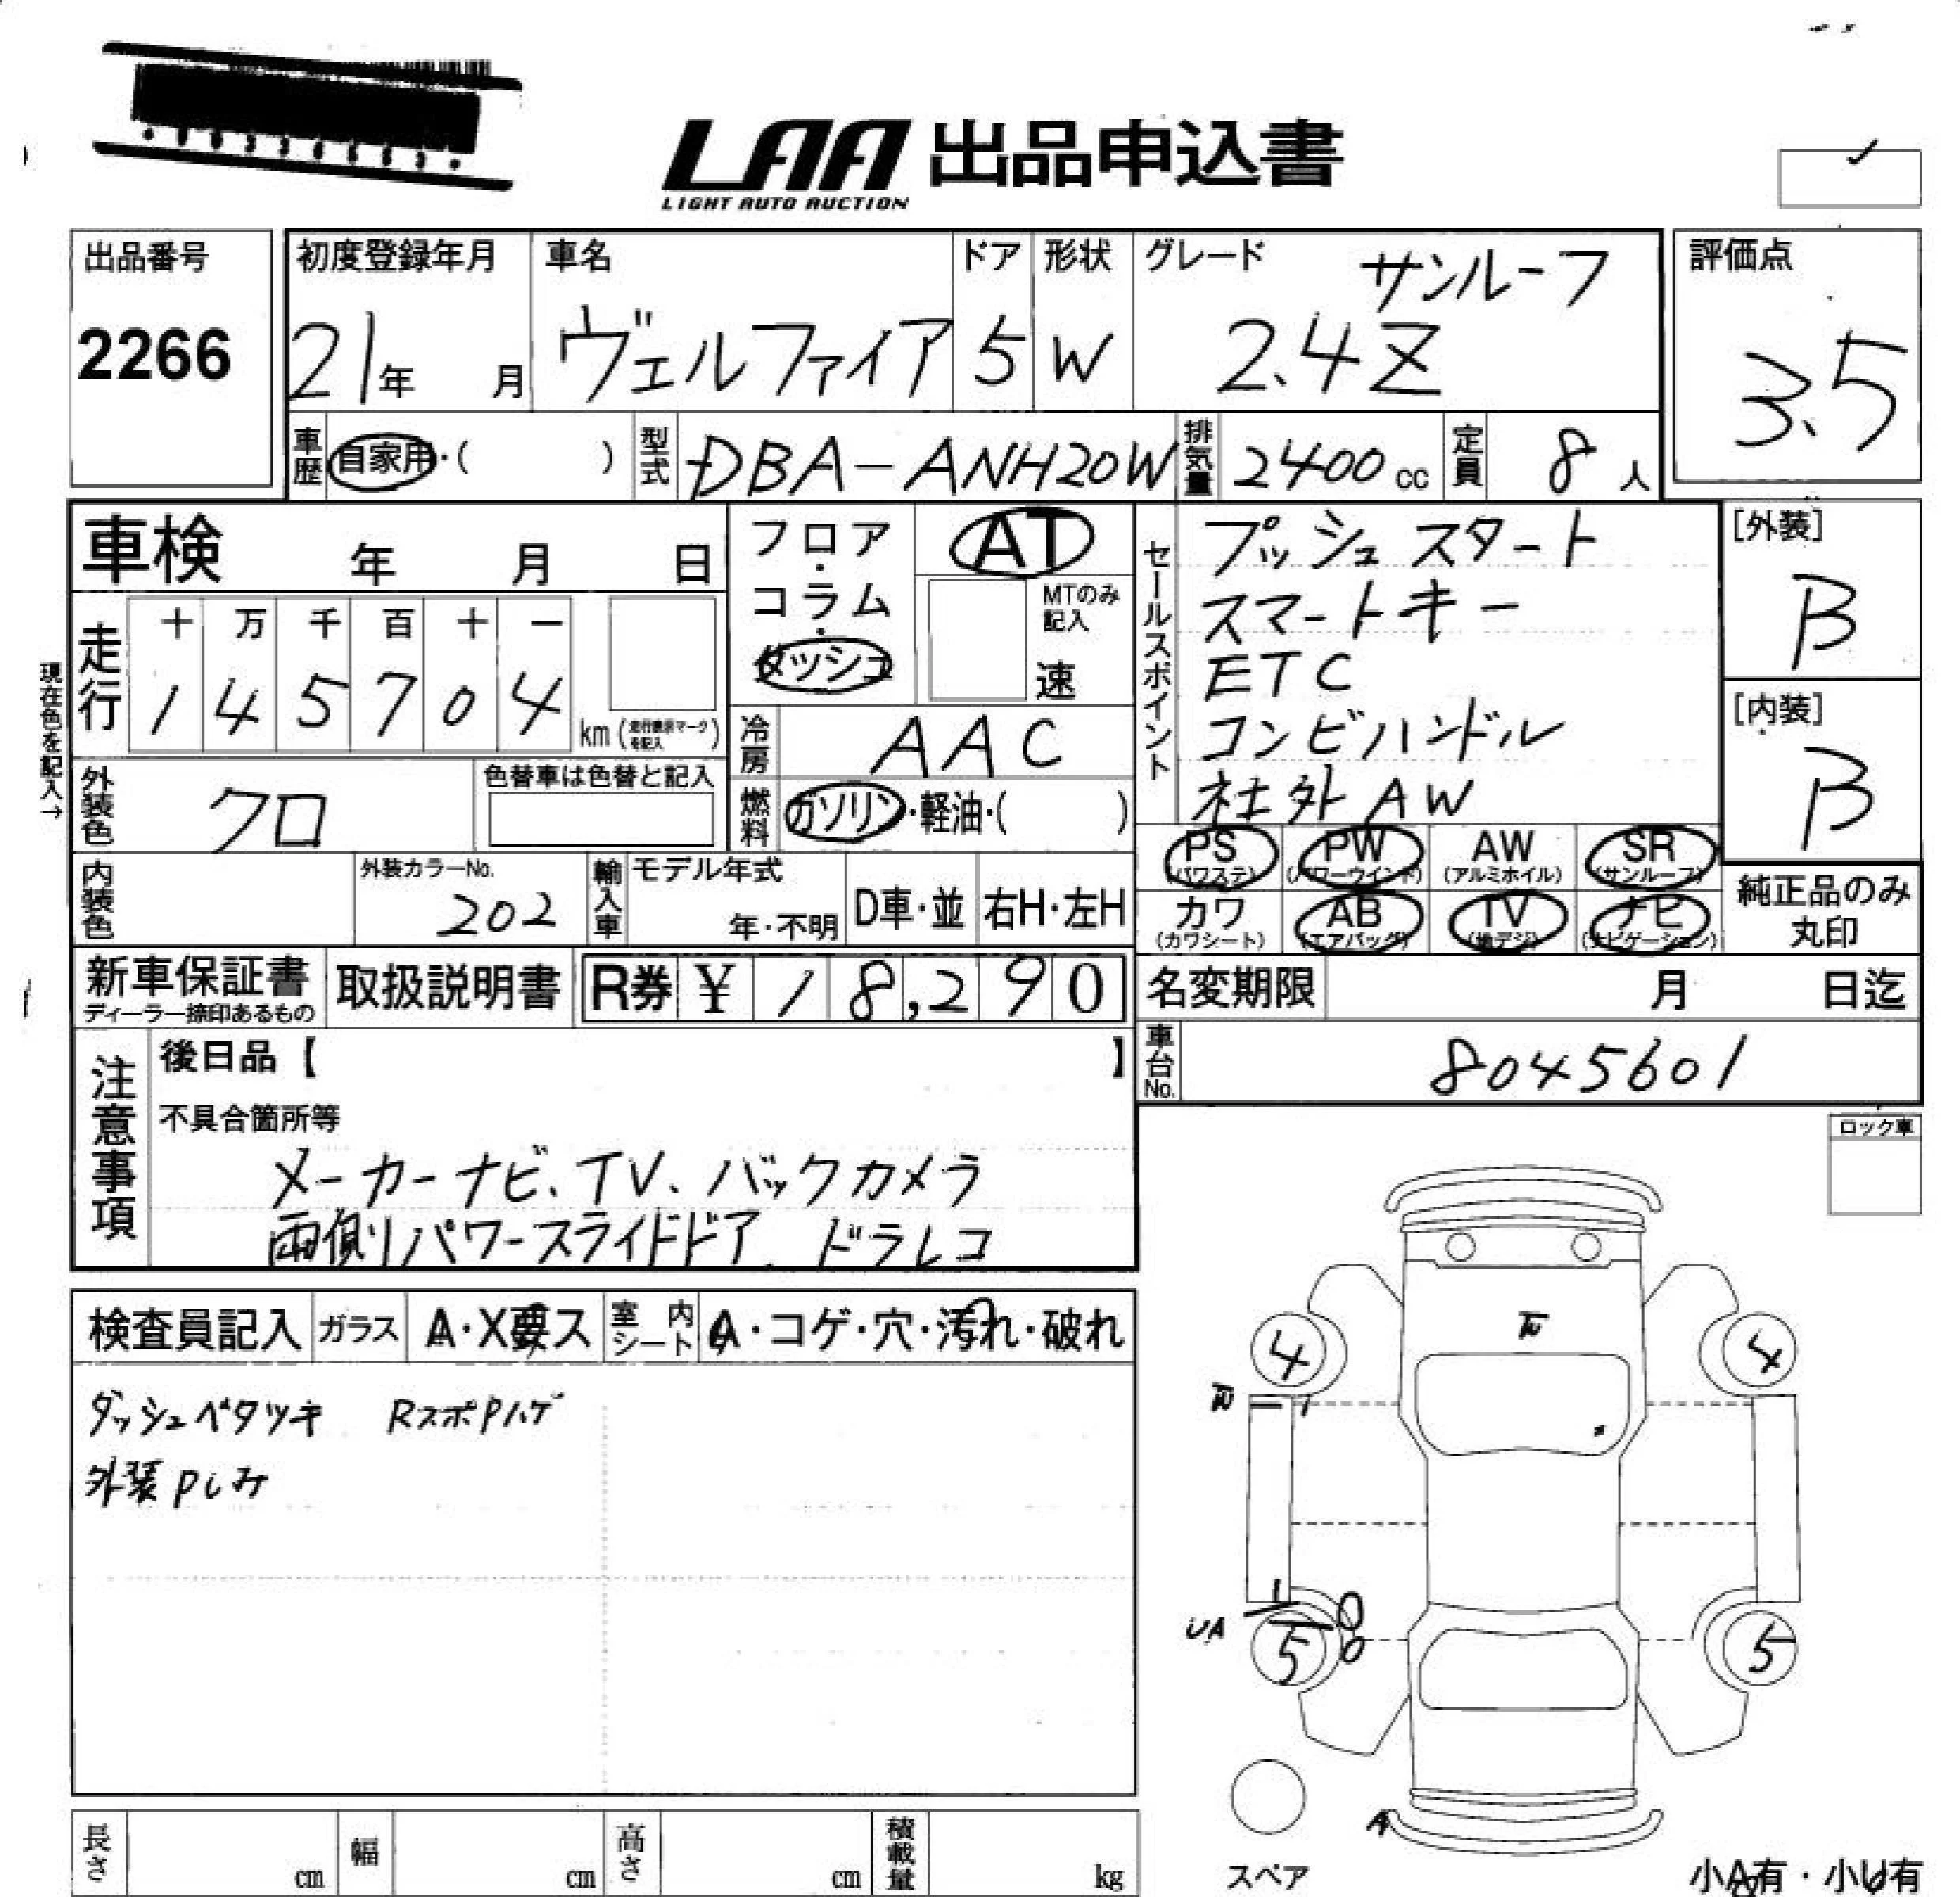 LAA 出品申込書
LIGHT AUTO AUCTION
出品番号
2266
初度登録年月
21年 月
車名
ヴェルファイア
ドア
5
形状
W
グレード
サンルーフ
2.4Z
評価点
3.5
車歴
自家用・( )
型式
DBA-ANH20W
排気量
2400cc
定員
8人
車検 年 月 日
現在色を記入→
走行
十 万 千 百 十 一
1 4 5 7 0 4 km
外装色
クロ
色替車は色替と記入
フロア・コラム・ダッシュ
AT
MTのみ記入
速
冷房
AAC
燃料
ガソリン・軽油・( )
セールスポイント
プッシュスタート
スマートキー
ETC
コンビハンドル
社外AW
[外装]
B
[内装]
B
PS (パワステ)
PW (パワーウインド)
AW (アルミホイル)
SR (サンルーフ)
カワ (カワシート)
AB (エアバッグ)
TV (地デジ)
ナビ (ナビゲーション)
純正品のみ
丸印
内装色
外装カラーNo.
202
輸入車
モデル年式
年・不明
D車・並
右H・左H
新車保証書
ディーラー捺印あるもの
取扱説明書
R券 ¥ 18,290
名変期限 月 日迄
車台No.
8045601
注意事項
後日品【 】
不具合箇所等
メーカーナビ、TV、バックカメラ
両側パワースライドドア、ドラレコ
ロック車
検査員記入
ガラス
A・X要ス
室内シート
A・コゲ・穴・汚れ・破れ
ダッシュベタツキ RスポPハゲ
外装Pしみ
4
4
UA
5
5
A
スペア
長さ cm
幅 cm
高さ cm
積載量 kg
小A有・小U有